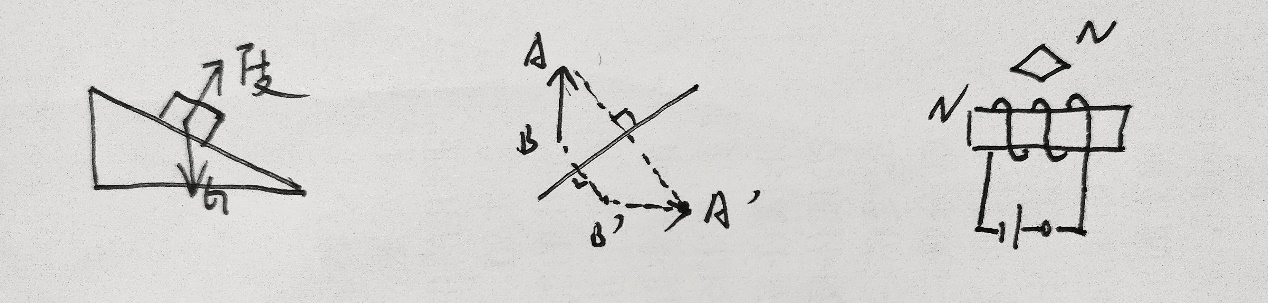 F支
G
A
B
B'
A'
N
N